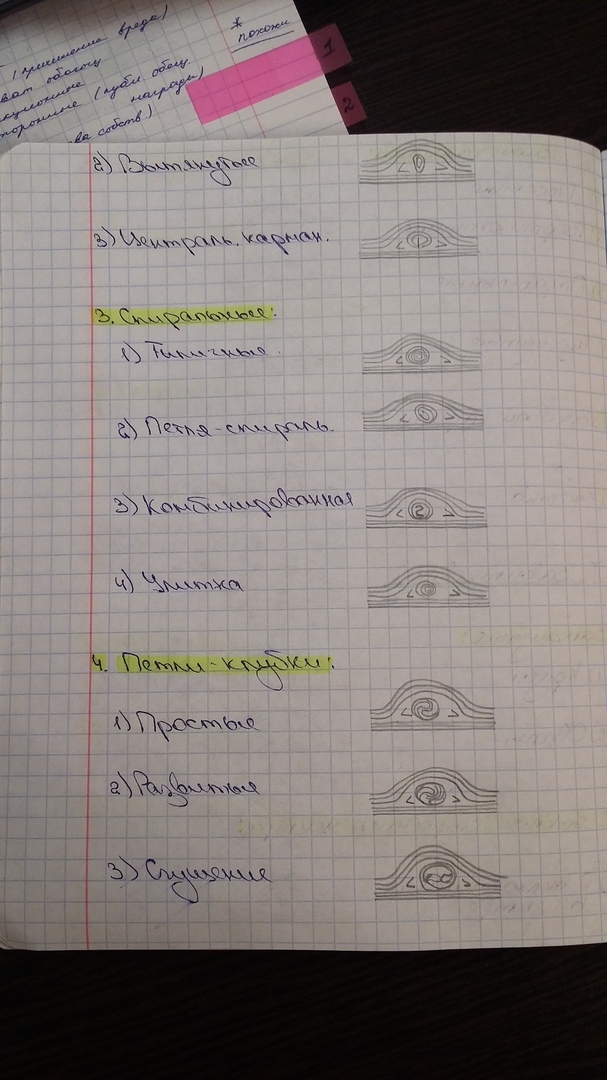 (причинение вреда)
*
похожи
(публ. обещ.
награды)
ва собств.)
1
2
2) Вытянутые
3) Централь. карман.
3. Спиральные:
1) Типичные
2) Петля-спираль.
3) Комбинированная
4) Улитка
4. Петли-клубки:
1) Простые
2) Развитые
3) Сгущение